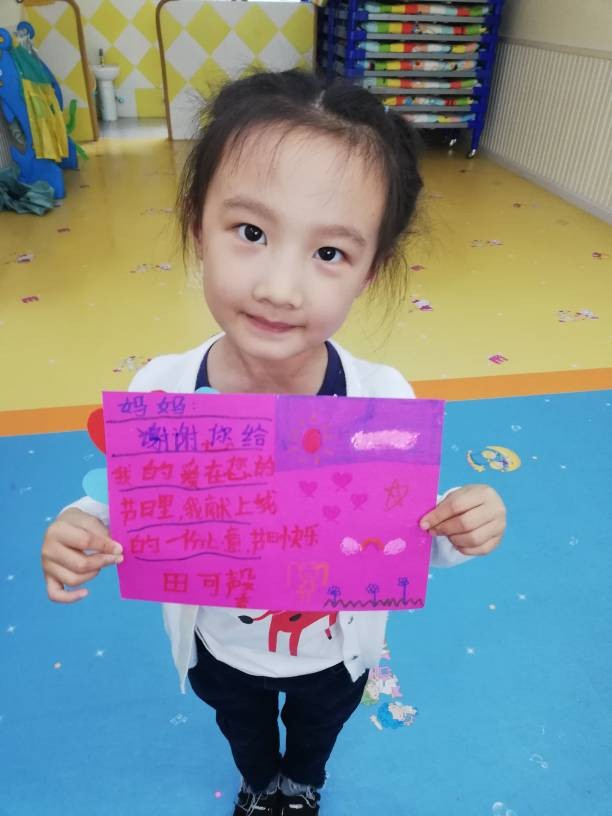 妈妈：
谢谢您给
我的爱在您的
节日里，我献上我
的一份心意，节日快乐
田可馨